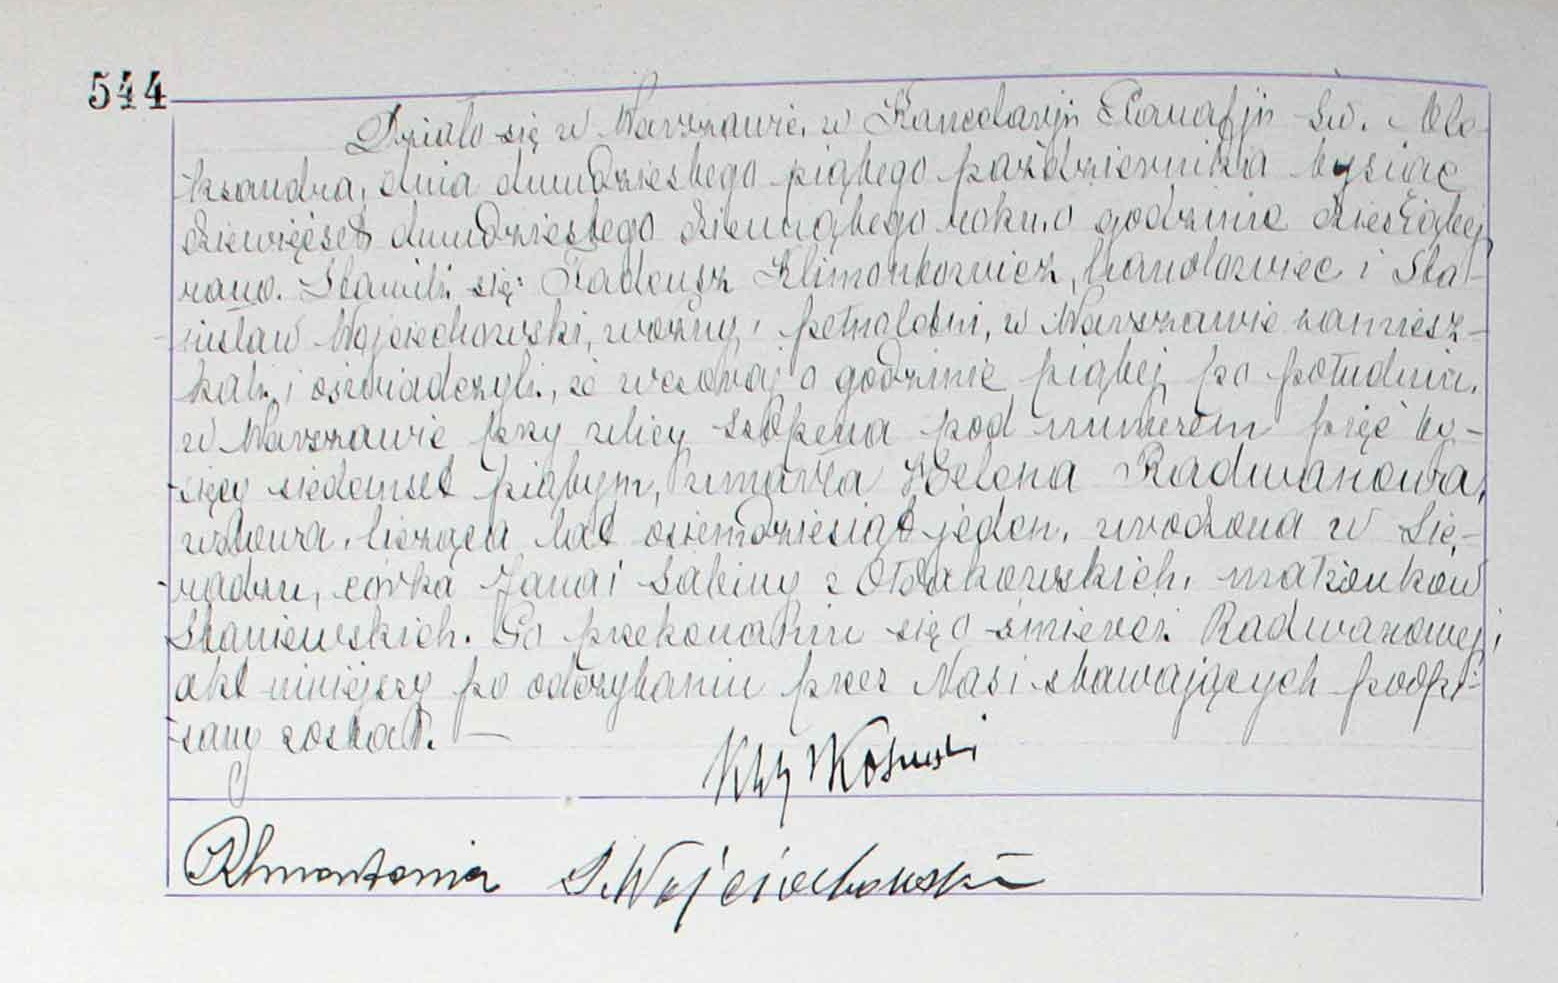 544
Działo się w Warszawie, w Kancelaryji Parafji Św. Ale-
ksandra, dnia dwudziestego piątego października tysiąc
dziewięćset dwudziestego dziewiątego roku, o godzinie dziesiątej
rano. Stawili się: Tadeusz Klimontowicz, handlowiec i Sta-
nisław Wojciechowski, woźny, pełnoletni, w Warszawie zamiesz-
kali i oświadczyli, że wczoraj o godzinie piątej po południu,
w Warszawie przy ulicy Szopena pod numerem pięć ty-
sięcy siedemset piątym, zmarła Helena Radwanowa,
wdowa, licząca lat osiemdziesiąt jeden, urodzona w Sie-
radzu, córka Jana i Sabiny z małżonków
Staniewskich. Po przekonaniu się o śmierci Radwanowej,
akt niniejszy po odczytaniu przez Nas i stawających podpi-
sany został. —
Klimontowicz S. Wojciechowski